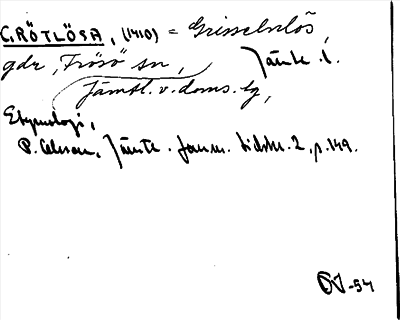 GRÖTLÖSA, (1410) = Grisselelös,
gde, Frösö sn, Jämtl. l.
Jämtl. v. doms. tg,
Etymologi,
P. Olsson, Jämtl. fornm. tidskr. 2, p. 149.
-54